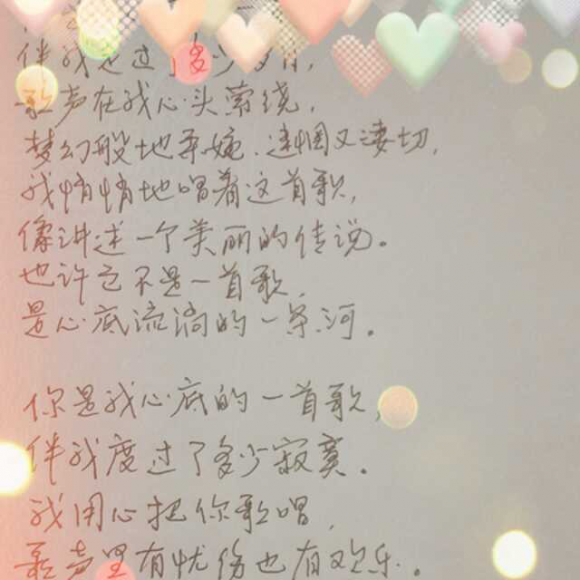 伴我走过了多少岁月,
歌声在我心头萦绕,
梦幻般地柔婉、迷惘又凄切,
我悄悄地唱着这首歌,
像讲述一个美丽的传说。
也许它不是一首歌,
是心底流淌的一条河。
你是我心底的一首歌,
伴我度过了多少寂寞。
我用心把你歌唱,
歌声里有忧伤也有欢乐。